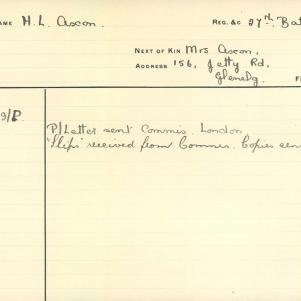 NAME H. L. Axon. REG. &C 27th. Bat
NEXT OF KIN Mrs Axon,
ADDRESS 156, Jetty Rd,
Glenelg.
9/P
P/Letter sent Commis. London
"Slips" received from Commis. Copies sen